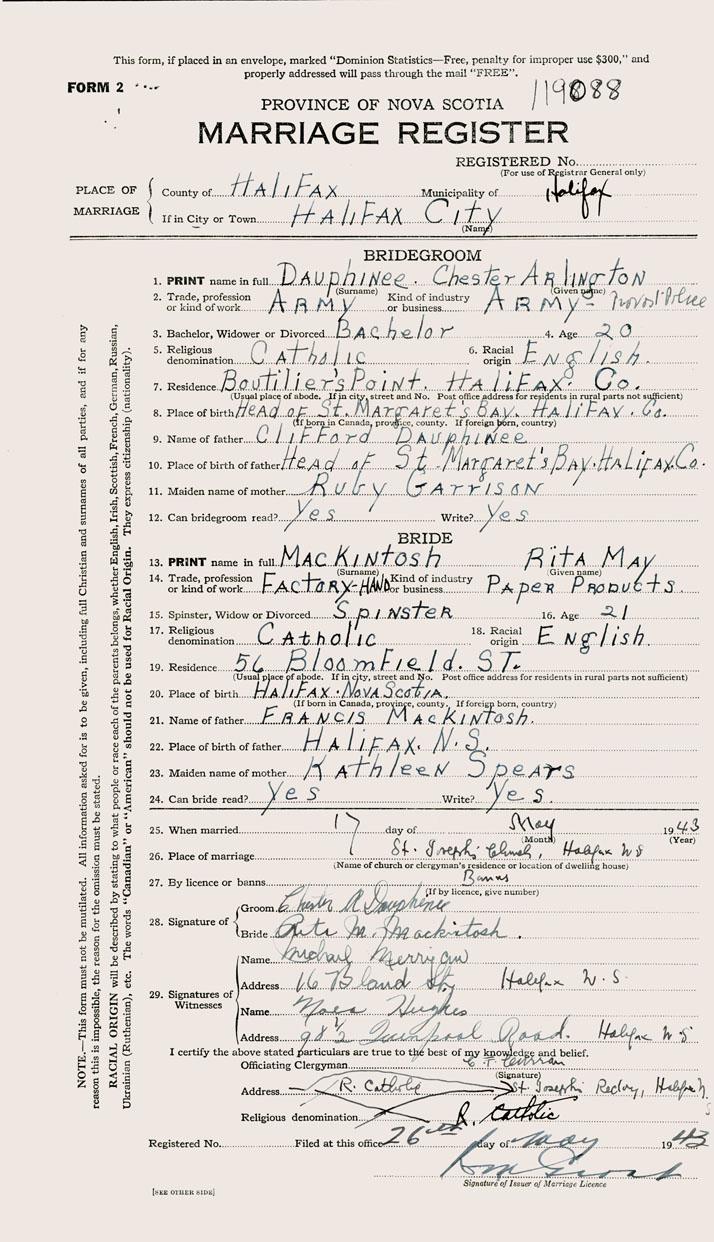 This form, if placed in an envelope, marked "Dominion Statistics—Free, penalty for improper use $300," and
properly addressed will pass through the mail "FREE".
FORM 2
119088
PROVINCE OF NOVA SCOTIA
MARRIAGE REGISTER
REGISTERED No.
(For use of Registrar General only)
PLACE OF MARRIAGE
County of HALIFAX Municipality of Halifax
If in City or Town HALIFAX CITY
(Name)
BRIDEGROOM
1. PRINT name in full DAUPHINEE. CHESTER ARLINGTON
(Surname) (Given name)
2. Trade, profession or kind of work ARMY Kind of industry or business ARMY - Provost Police
3. Bachelor, Widower or Divorced Bachelor 4. Age 20
5. Religious denomination Catholic 6. Racial origin English.
7. Residence Boutilier's Point. HALIFAX. Co.
(Usual place of abode. If in city, street and No. Post office address for residents in rural parts not sufficient)
8. Place of birth Head of St. Margaret's Bay. HALIFAX. Co.
(If born in Canada, province, county. If foreign born, country)
9. Name of father Clifford Dauphinee
10. Place of birth of father Head of St. Margaret's Bay. HALIFAX Co.
11. Maiden name of mother Ruby Garrison
12. Can bridegroom read? Yes Write? Yes
BRIDE
13. PRINT name in full MacKintosh Rita May
(Surname) (Given name)
14. Trade, profession or kind of work FACTORY-HAND Kind of industry or business Paper Products.
15. Spinster, Widow or Divorced Spinster 16. Age 21
17. Religious denomination Catholic 18. Racial origin English.
19. Residence 56 Bloomfield. ST.
(Usual place of abode. If in city, street and No. Post office address for residents in rural parts not sufficient)
20. Place of birth HALIFAX. NOVA SCOTIA.
(If born in Canada, province, county. If foreign born, country)
21. Name of father FRANCIS MacKintosh.
22. Place of birth of father HALIFAX. N.S.
23. Maiden name of mother KAthleen Spears
24. Can bride read? Yes Write? Yes.
25. When married 17 day of May 1943
(Month) (Year)
26. Place of marriage St. Joseph's Church, Halifax N S
(Name of church or clergyman's residence or location of dwelling house)
27. By licence or banns Banns
(If by licence, give number)
28. Signature of
Groom Chester A Dauphinee
Bride Rita M. Mackintosh.
29. Signatures of Witnesses
Name Michael Merrigan
Address 16 Bland St, Halifax N.S.
Name Hughes
Address 98½ Quinpool Road. Halifax N S
I certify the above stated particulars are true to the best of my knowledge and belief.
Officiating Clergyman C. F. Curran
(Signature)
Address R. Catholic St Josephs Rectory, Halifax N. S
Religious denomination R. Catholic
Registered No. Filed at this office 26th day of May 1943
Signature of Issuer of Marriage Licence
[SEE OTHER SIDE]
NOTE.—This form must not be mutilated. All information asked for is to be given, including full Christian and surnames of all parties, and if for any
reason this is impossible, the reason for the omission must be stated.
RACIAL ORIGIN will be described by stating to what people or race each of the parents belongs, whether English, Irish, Scottish, French, German, Russian,
Ukrainian (Ruthenian), etc. The words "Canadian" or "American" should not be used for Racial Origin. They express citizenship (nationality).